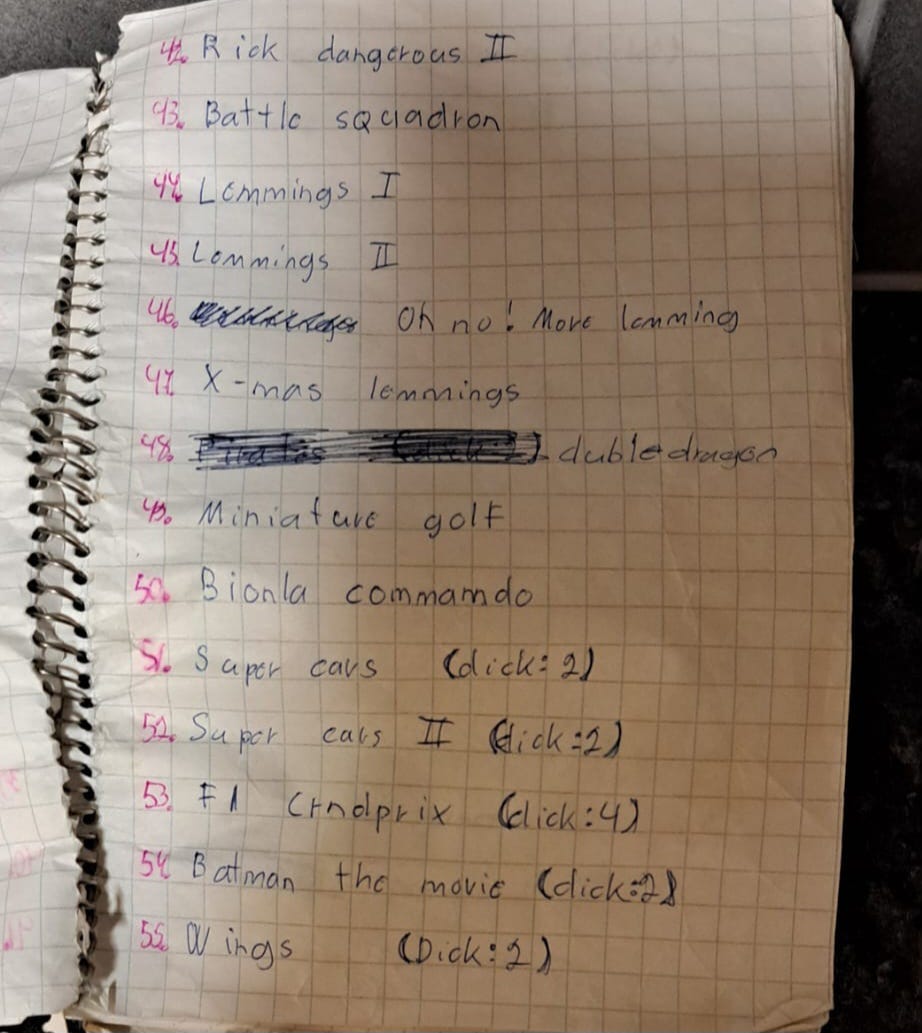 42. Rick dangerous II
43. Battle squadron
44. Lemmings I
45. Lemmings II
46. Oh no! More lemming
47. X-mas lemmings
48. duble dragon
49. Miniature golf
50. Bionla commamdo
51. Super cars (dick:2)
52. Super cars II (dick:2)
53. F1 Grndprix (dick:4)
54. Batman the movie (dick:2)
55. Wings (Dick:2)